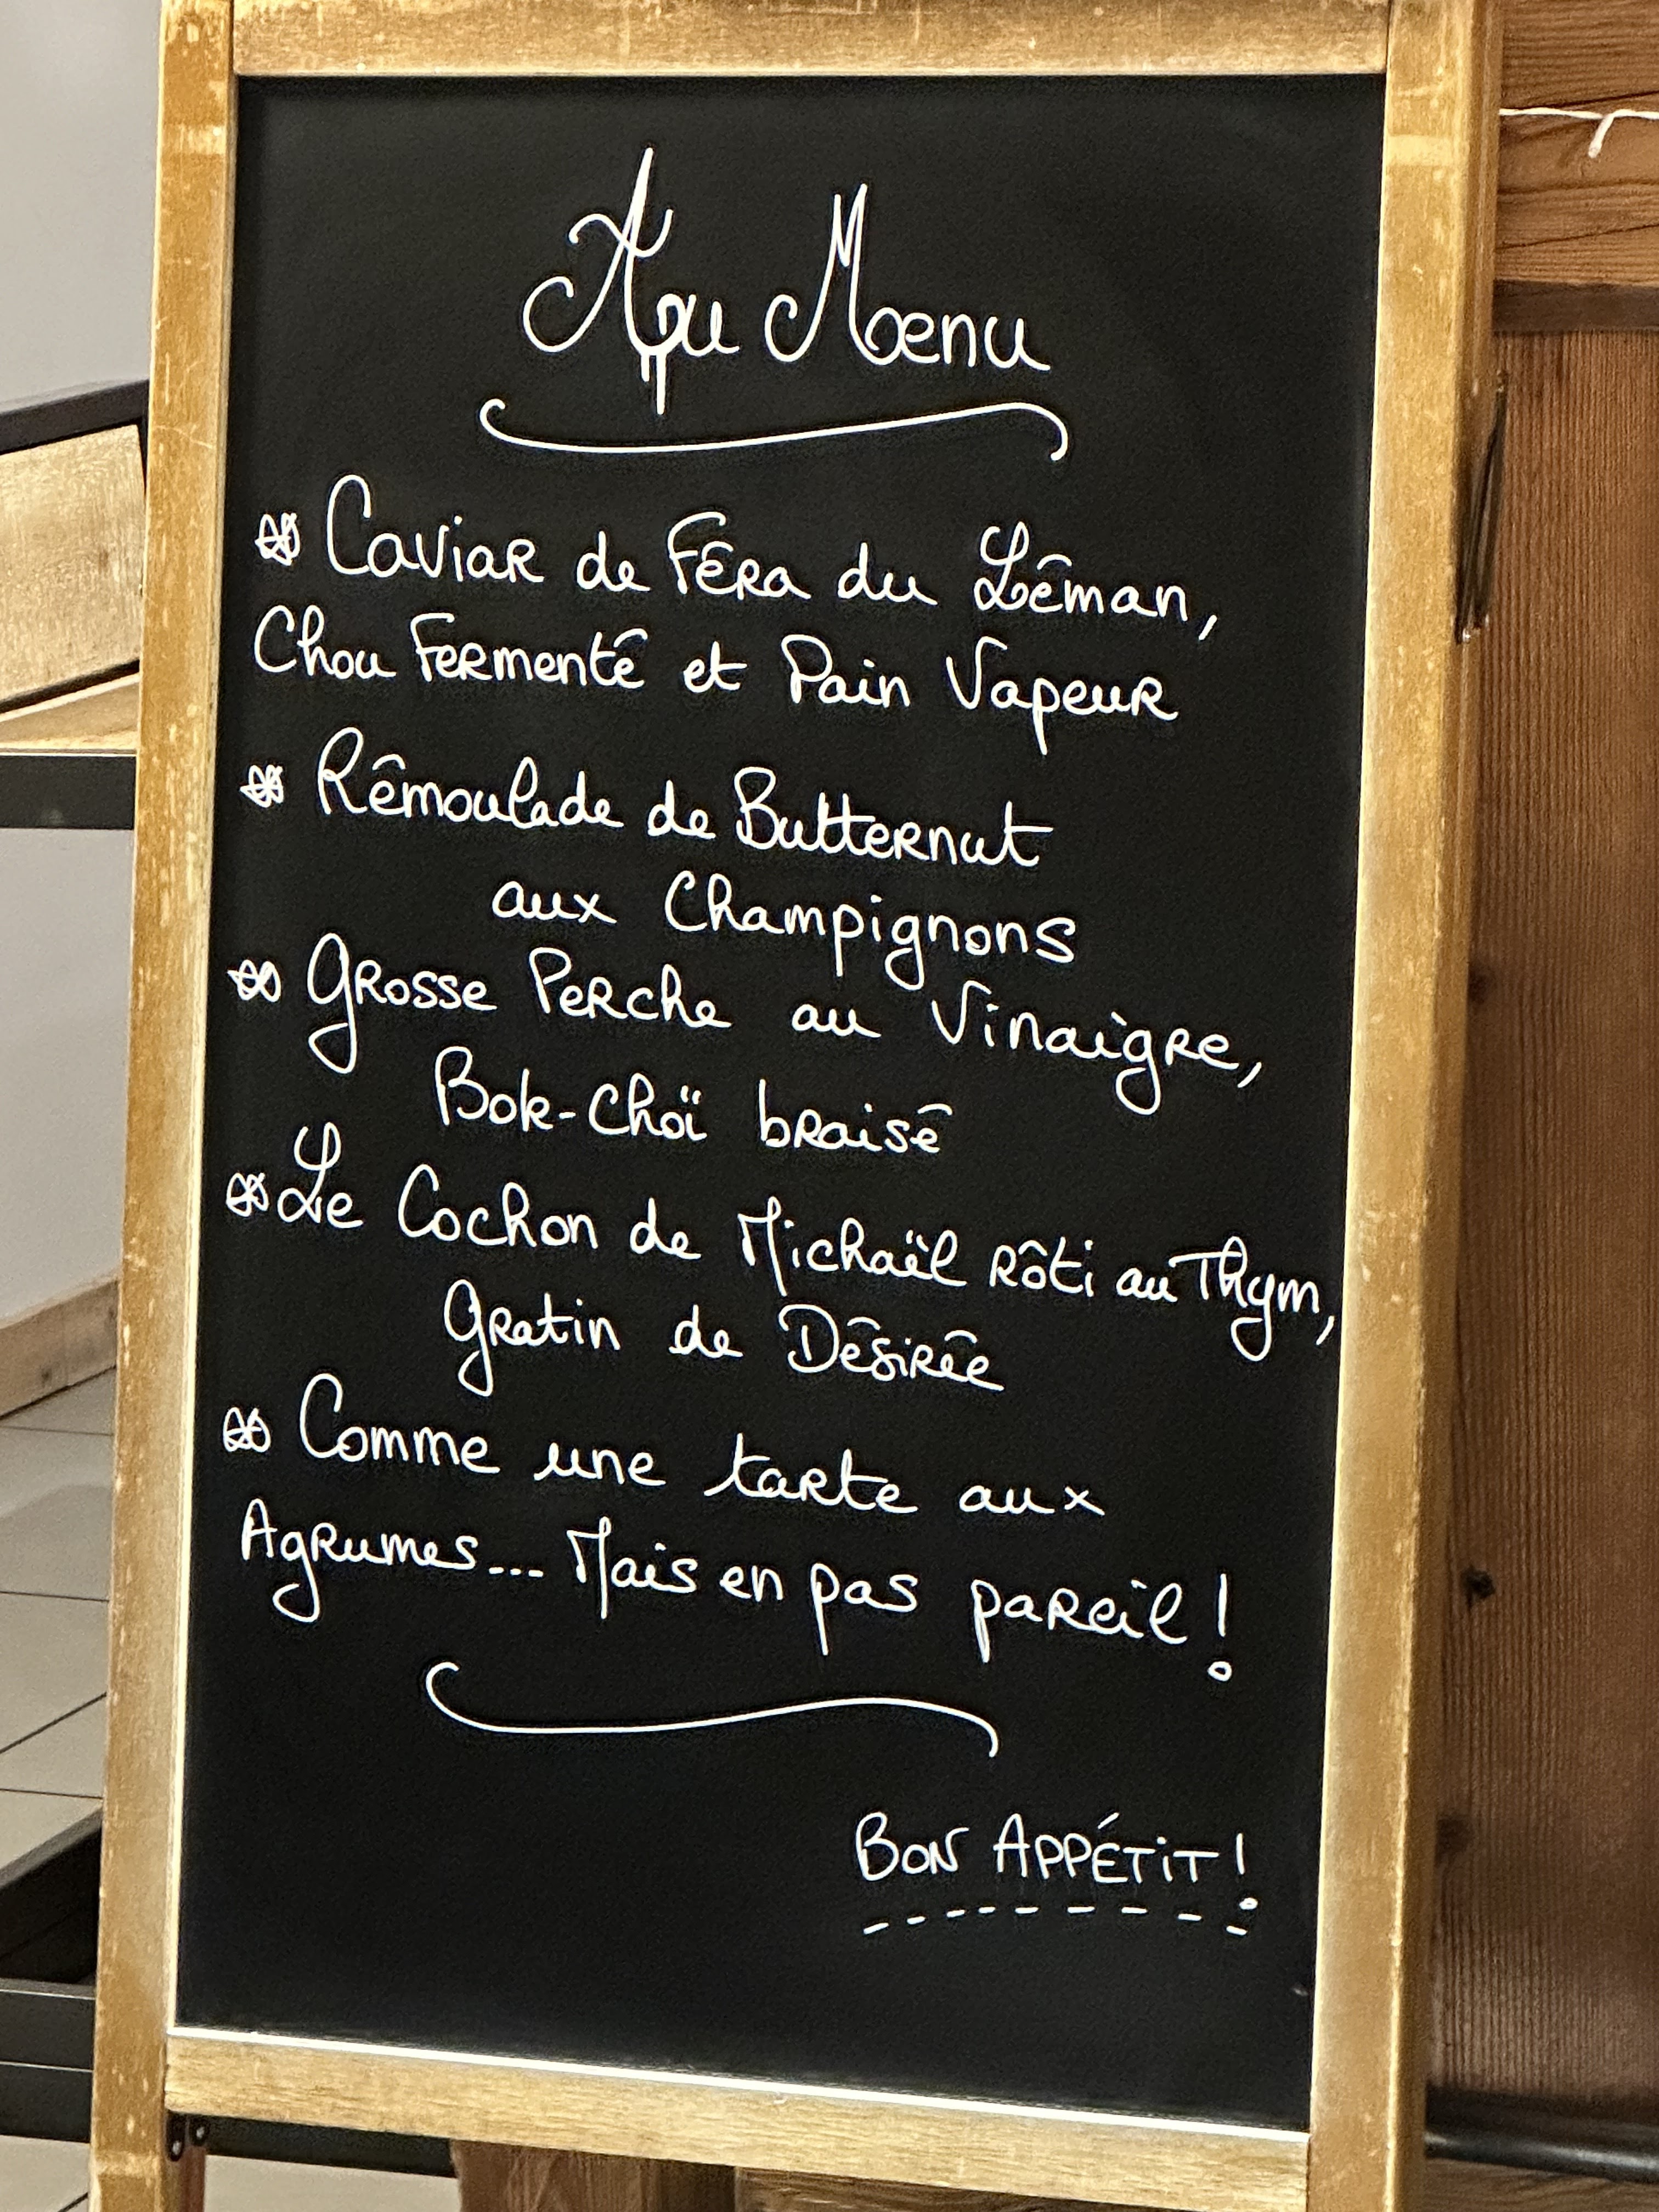 Au Menu
Caviar de Féra du Léman,
Chou Fermenté et Pain Vapeur
Rémoulade de Butternut
aux Champignons
Grosse Perche au Vinaigre,
Bok-Choï braisé
Le Cochon de Michaël rôti au Thym,
Gratin de Désirée
Comme une tarte aux
Agrumes... Mais en pas pareil !
BON APPÉTiT !